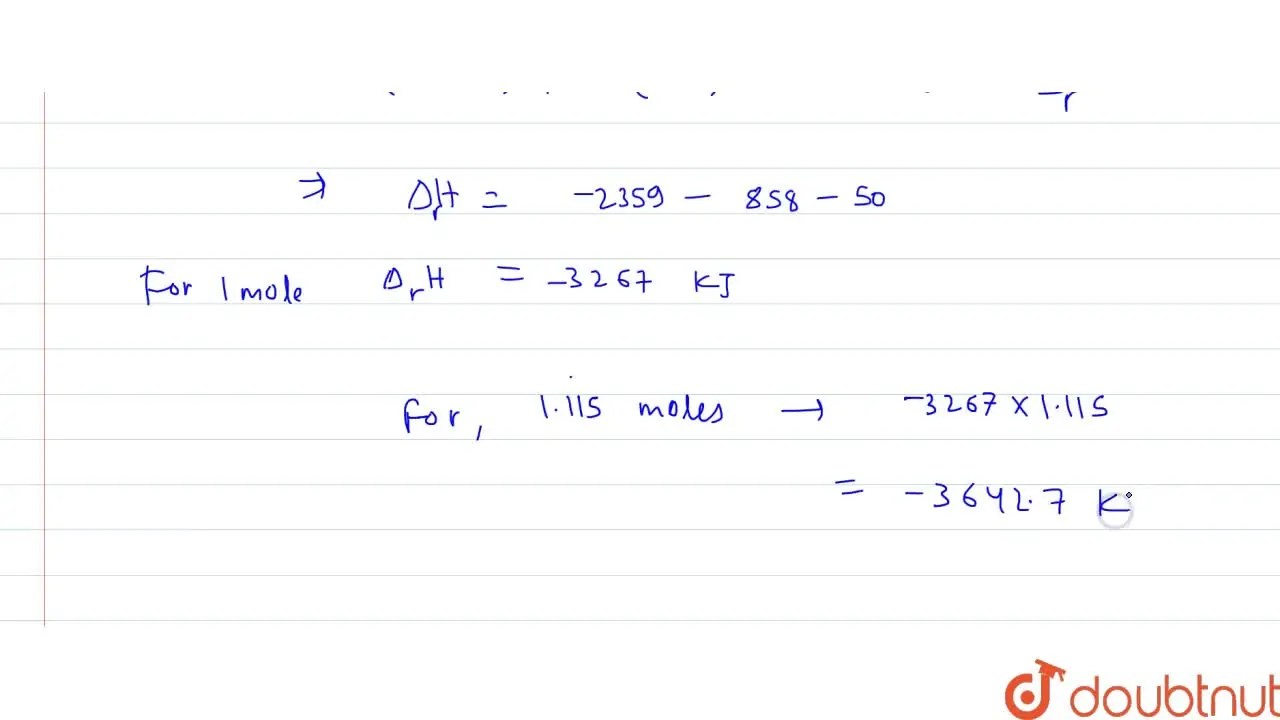 ⇒ ΔrH = -2359 - 858 - 50
For 1 mole ΔrH = -3267 KJ
For, 1.115 moles → -3267 × 1.115
= -3642.7 K
doubtnut